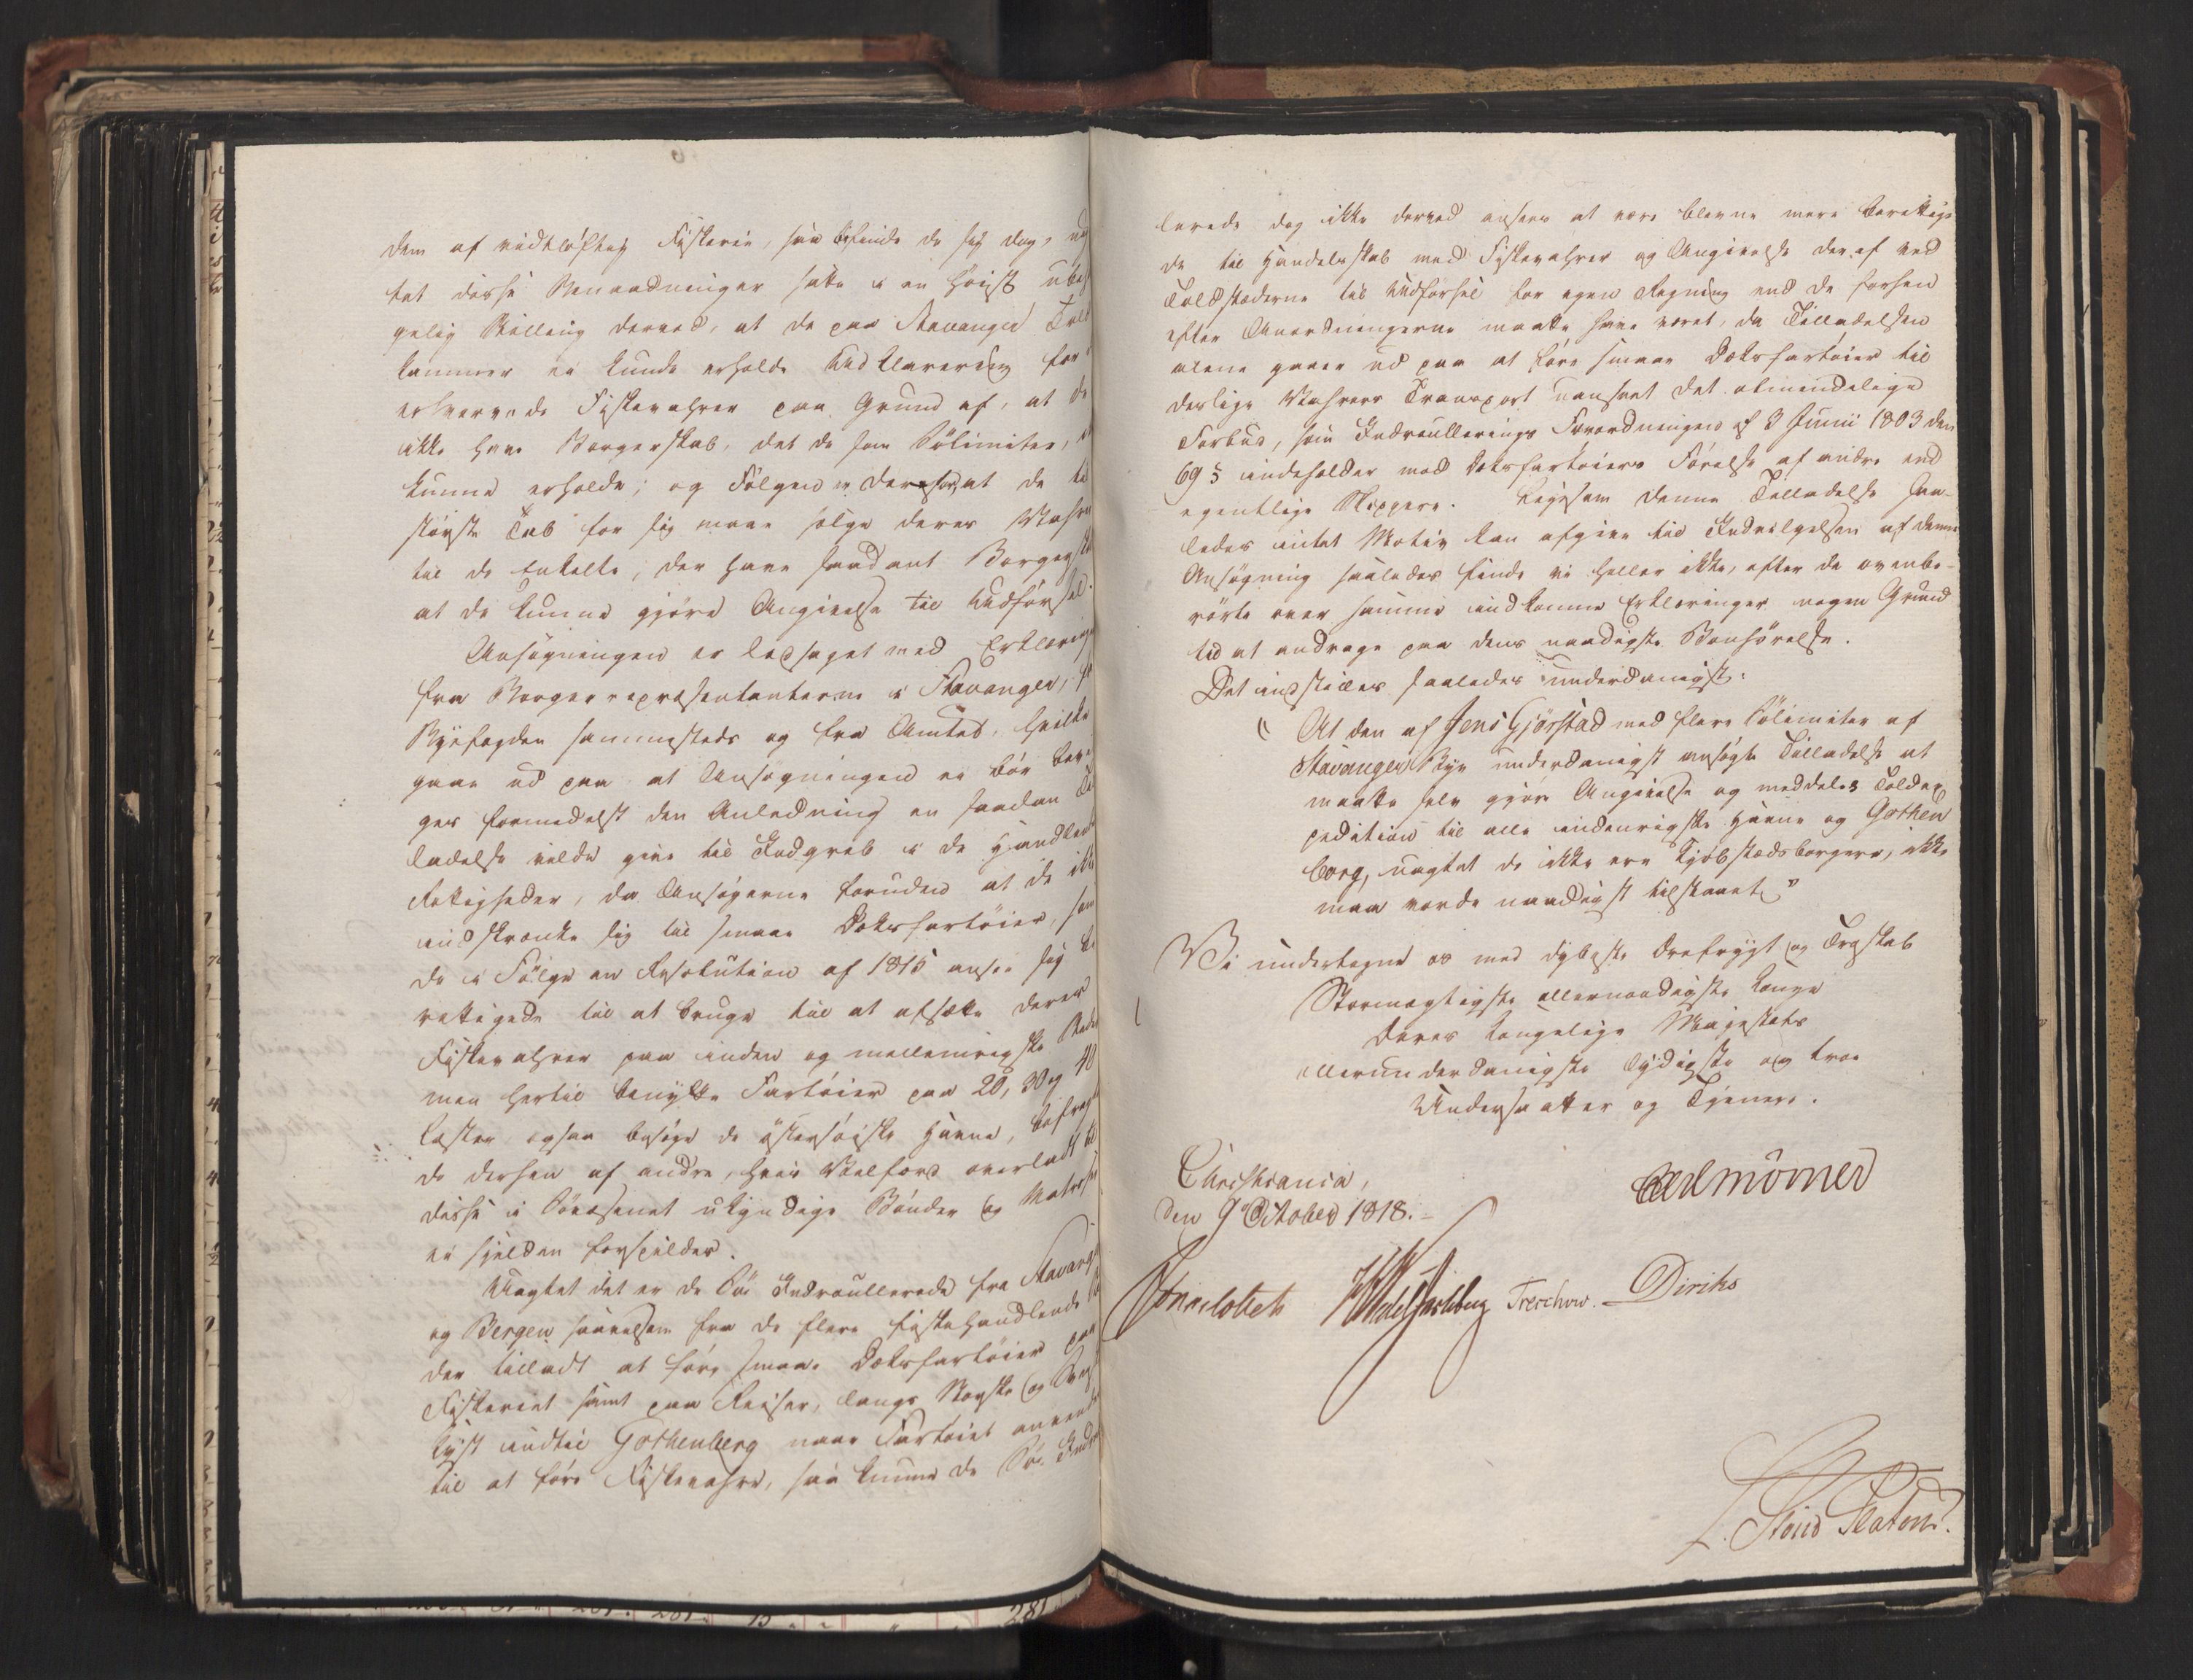 dem af vidtløftig Fiskerie, saa befinde de sig dog, uag
tet disse Benaadninger satte i en høist ubeha
gelig Stilling derved, at de paa Stavanger Told
kammer ei kunde erholde Udklarering for
erhvervede Fiskevahrer paa Grund af, at de
ikke have Borgerskab, det de som Sølimiter, ei
kunne erholde; og Følgen er derfor, at de til
største Tab for sig maae sælge deres Vahre
til de Enkelte, der have saadant Borgerskab
at de kunne gjøre Angivelse til Udførsel.
Ansøgningen er ledsaget med Erklæringer
fra Borgerrepræsentanterne i Stavanger, fra
Byefogden sammesteds og fra Amtet, hvilke
gaae ud paa at Ansøgningen ei bør bevil
ges formedelst den Anledning en saadan Til
ladelse vilde give til Indgreb i de Handlendes
Rettigheder, da Ansøgerne foruden at de ikke
indskrænke sig til smaae Dæksfartøier, som
de i Følge en Resolution af 1815 ansee sig be
rettigede til at bruge til at afsætte deres
Fiskevahrer paa inden og mellemrigske Steder
men hertil benytte Fartøier paa 20, 30 og 40
Læster ogsaa besøge de østersøiske Havne, befragte
de dertil af andre, hvis Velfærd overladt til
disse i Søvæsenet ukyndige Bønder og Matroser
ei sjelden forspildes.
Uagtet det er de Søe Indroullerede fra Stavanger
og Bergen saavelsom fra de flere fiskehandlende Stæ
der tilladt at føre smaae Dæksfartøier paa
Fiskeriet samt paa Reiser, langs Norske og Svensk
Kyst indtil Gothenberg naar Fartøiet anvendes
til at føre Fiskevahre, saa kunne de Søe Indroul
lerede dog ikke derved ansees at være blevne mere berettige
de til Handelsskab med Fiskevahrer og Angivelse deraf ved
Toldstæderne til Udførsel for egen Regning end de forhen
efter Anordningerne maatte have været, da Tilladelsen
alene gaaer ud paa at føre smaae Dæksfartøier til
deslige Vahrers Transport uanseet det almindelige
Forbud, som Indroullerings Forordningen af 3 Junii 1803 den
69 § indeholder mod Dæksfartøiers Førelse af andre end
egentlige Skippere. Ligesom denne Tilladelse saa-
ledes intet Motiv kan afgive til Indvilgelsen af denne
Ansøgning saaledes finde vi heller ikke, efter de ovenbe-
rørte over samme indkomne Erklæringer nogen Grund
til at andrage paa dens naadigste Bønhørelse.
Det indstilles saaledes underdanigst:
"At den af Jens Gjørstad med flere Sølimiter af
Stavanger Bye underdanigst ansøgte Tilladelse at
maatte selv gjøre Angivelse og meddeles Toldex
pedition til alle indenrigske Havne og Gothen
borg, uagtet de ikke ere Kjøbstædsborgere, ikke
maa vorde naadigst tilstaaet"
Vi undertegne os med dybeste Ærefrygt og Troskab
Stormægtigste allernaadigste Konge
Deres Kongelige Majestæts
allerunderdanigste lydigste og troe
Undersaatter og Tjenere.
Christiania,
den 9 October 1818.
Carl Mörner
Sommerfeldt HWedelJarlsberg Treschow. Diriks
L. Stoud Platou.